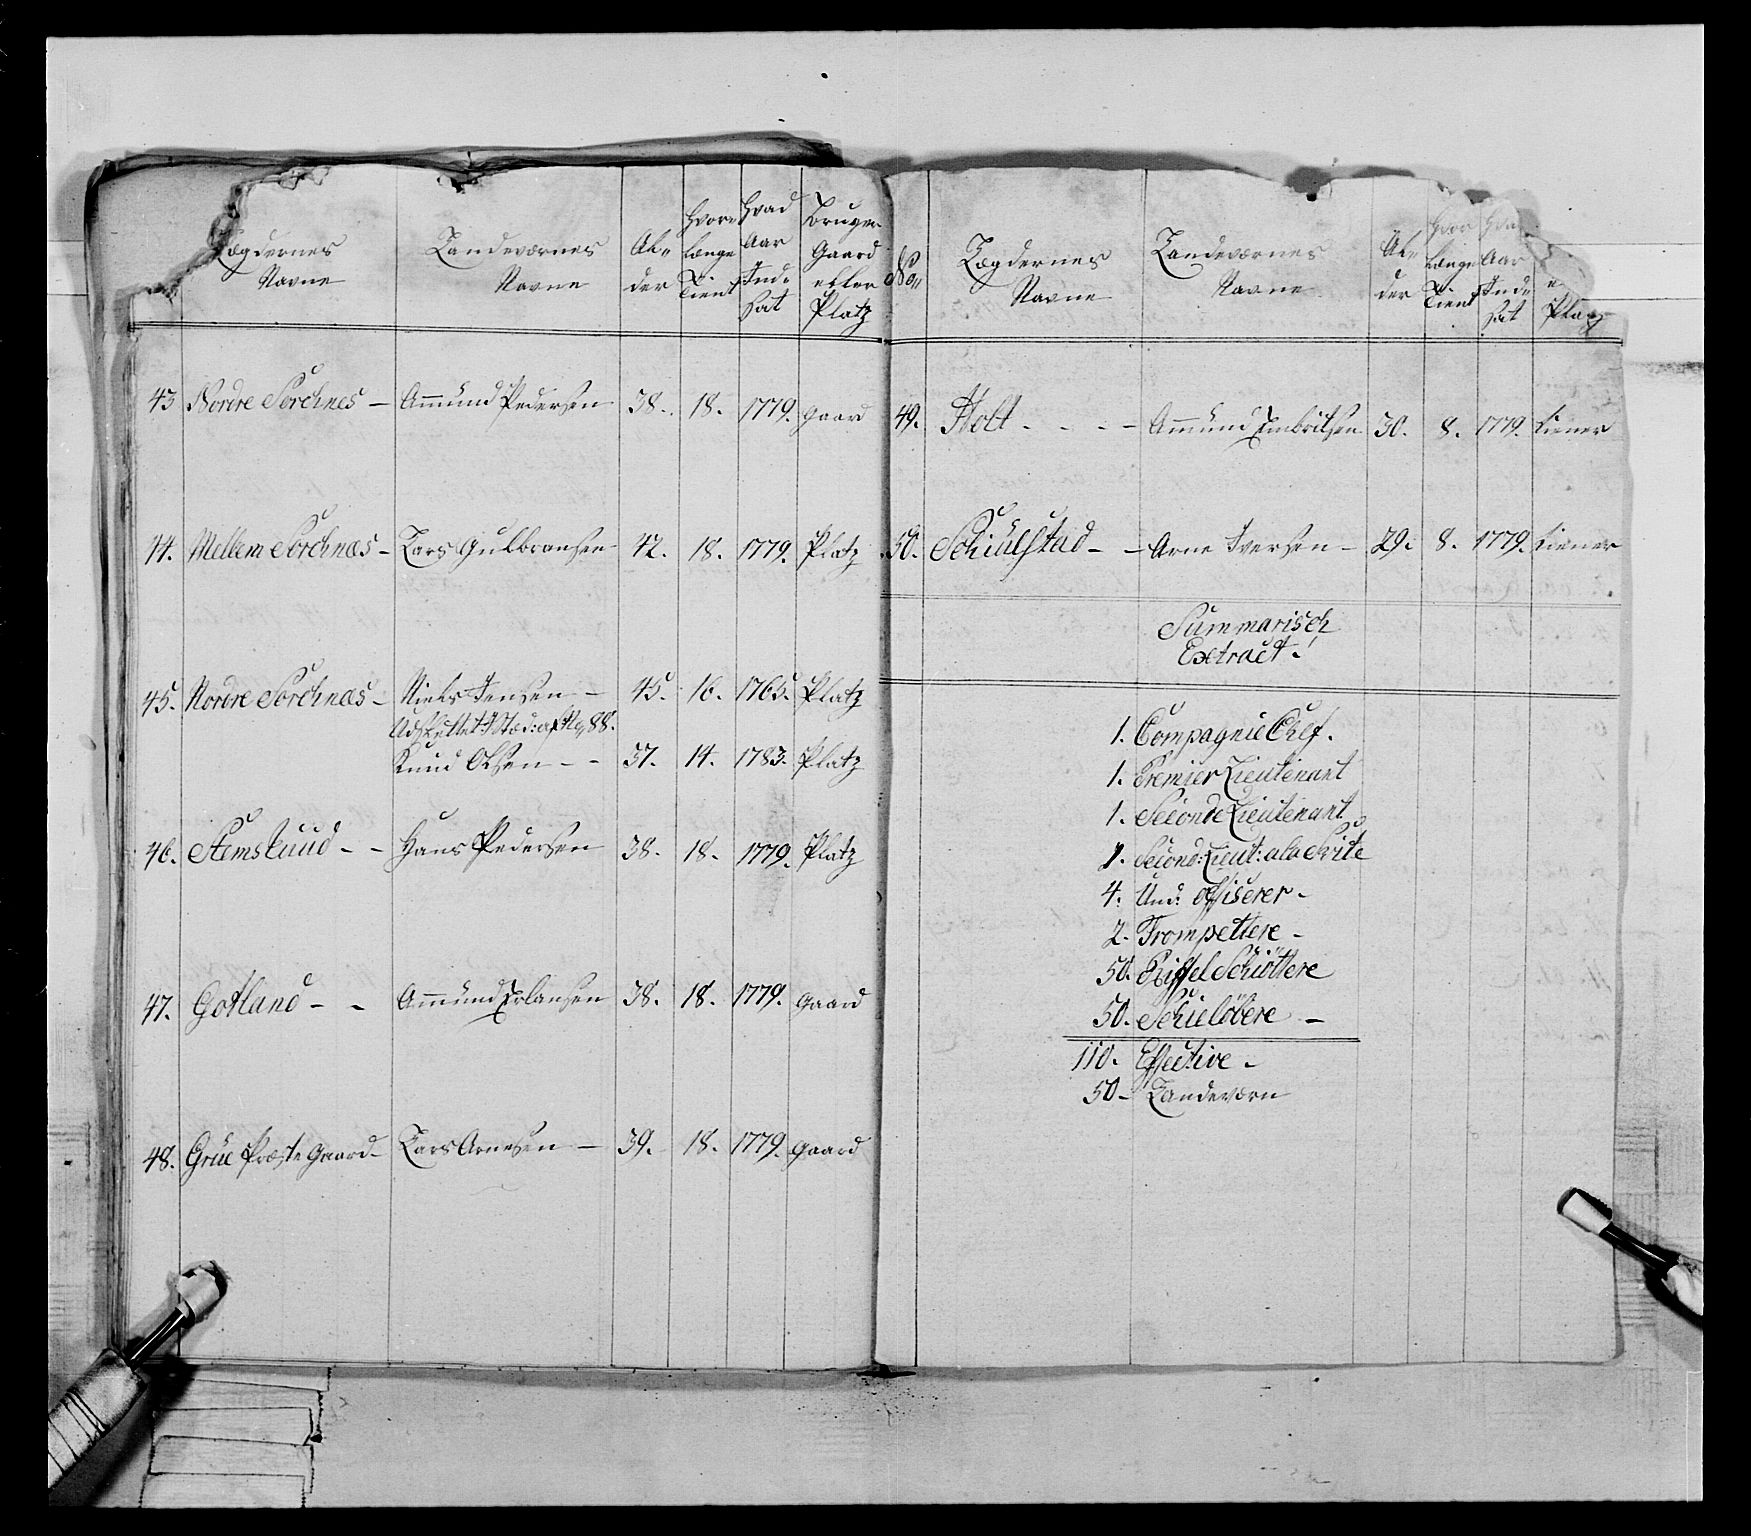 Lægdernes Navne
Landeværnes Navne
Al- der
Hvor længe Tient
Hvad Aar Ind- sat
Bruger Gaard eller Platz
43 Nordre Sorchnes – Ammund Pedersen 38. 18. 1779. Gaard
44. Mellem Sorchnæs – Lars Gulbransen 42. 18. 1779. Platz
45. Nordre Sorchnæs – Niels Jensen – 45. 16. 1765. Platz
Udskuttet: I Stæd: af No 88.
Knud Olsen – – 37. 14. 1783. Platz
46. Stemsruud – – Hans Pedersen 38. 18. 1779. Platz
47. Gotland – – Ammund Erlansen 38. 18. 1779. Gaard
48. Grue Præste Gaard – Lars Arnesen – 39. 18. 1779. Gaard
No
Lægdernes Navne
Landeværnes Navne
Al- der
Hvor længe Tient
Hva Aar Ind- sat
Platz
49. Holt – – – – Ammund Embritsen 30. 8. 1779. Tiener
50. Schulstad – – Arne Iversen – 29. 8. 1779. Tiener
Summarisch
Extract.
1. Compagnie Chef.
1. Premier Lieutenant
1. Seconde Lieutenant
1. Second: Lieut: ala Svite
4. Und: officerer –
2. Trompettere –
50. Riffel Schüttere
50. Schielöbere –
110. Effective –
50 – Landeværn